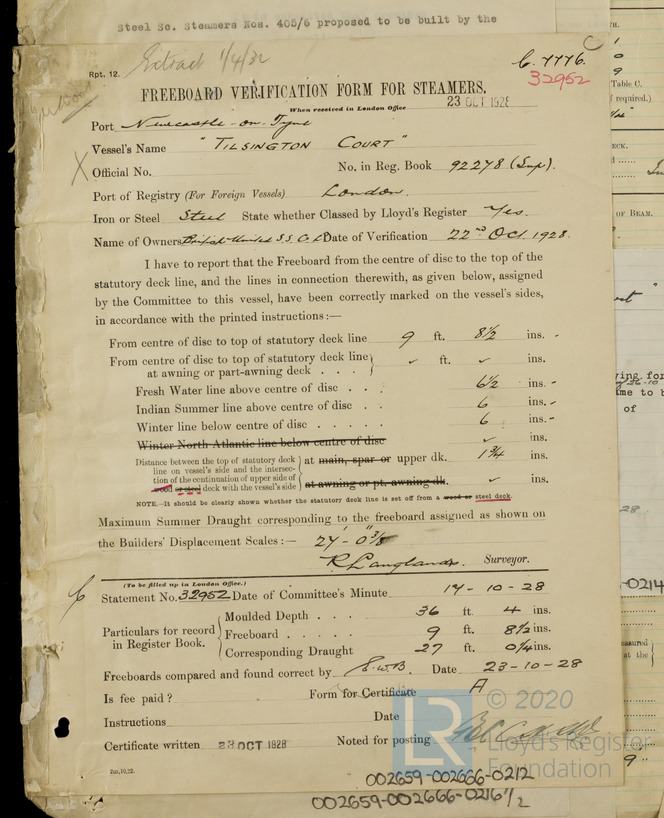 Steel Sc. Steamers Nos. 405/6 proposed to be built by the
Extract 1/4/32
Rpt. 12.
C. 7776.
32952
FREEBOARD VERIFICATION FORM FOR STEAMERS.
When received in London Office 23 OCT 1928
Port Newcastle-on-Tyne
Vessel's Name "TILSINGTON COURT"
Official No. No. in Reg. Book 92278 (Sup).
Port of Registry (For Foreign Vessels) London.
Iron or Steel Steel State whether Classed by Lloyd's Register Yes.
Name of Owners British United S.S. Co. Ld Date of Verification 22nd Oct. 1928.
I have to report that the Freeboard from the centre of disc to the top of the
statutory deck line, and the lines in connection therewith, as given below, assigned
by the Committee to this vessel, have been correctly marked on the vessel's sides,
in accordance with the printed instructions:—
From centre of disc to top of statutory deck line 9 ft. 8½ ins.
From centre of disc to top of statutory deck line
at awning or part-awning deck . . . ✓ ft. ✓ ins.
Fresh Water line above centre of disc . . 6½ ins.
Indian Summer line above centre of disc . . 6 ins.
Winter line below centre of disc . . . . . 6 ins.
Winter North Atlantic line below centre of disc ✓ ins.
Distance between the top of statutory deck
line on vessel's side and the intersec-
tion of the continuation of upper side of
wood or steel deck with the vessel's side
at main, spar or upper dk. 1¾ ins.
at awning or pt. awning dk. ✓ ins.
NOTE.—It should be clearly shown whether the statutory deck line is set off from a wood or steel deck.
Maximum Summer Draught corresponding to the freeboard assigned as shown on
the Builders' Displacement Scales:— 27'-0⅜"
R Langlands. Surveyor.
(To be filled up in London Office.)
Statement No. 32952 Date of Committee's Minute 14-10-28
Particulars for record
in Register Book.
Moulded Depth . . . 36 ft. 4 ins.
Freeboard . . . . . 9 ft. 8½ ins.
Corresponding Draught 27 ft. 0¼ ins.
Freeboards compared and found correct by E.W.B. Date 23-10-28
Is fee paid? Form for Certificate A
Instructions Date
Certificate written 23 OCT 1928 Noted for posting
2m,10,22.
© 2020
LR
Lloyd's Register
Foundation
002659-002666-0212
002659-002666-0216½
Table C.
required.)
OF BEAM.
ying for
ime to b
of
-0214